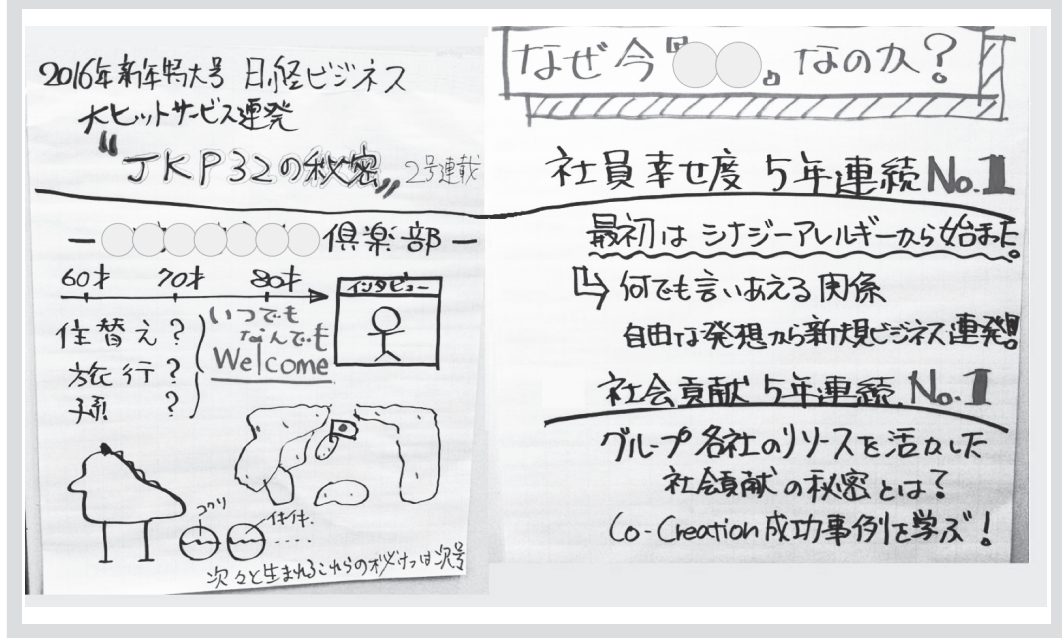 2016年新年特大号 日経ビジネス
大ヒットサービス連発
"JKP32の秘密" 2号連載
ー 倶楽部 ー
60才 70才 80才
住替え?
旅行?
孫 ?
いつでも
なんでも
Welcome
インタビュー
コツリ
イキイキ.
次々と生まれるこれらの秘けつは次号
なぜ今『 』なのか?
社員幸せ度 5年連続 No.1
最初は シナジーアレルギーから始まった。
何でも言いあえる関係
自由な発想から新規ビジネス連発!!
社会貢献 5年連続 No.1
グループ各社のリソースを活かした
社会貢献の秘密とは?
Co-Creation 成功事例を学ぶ!